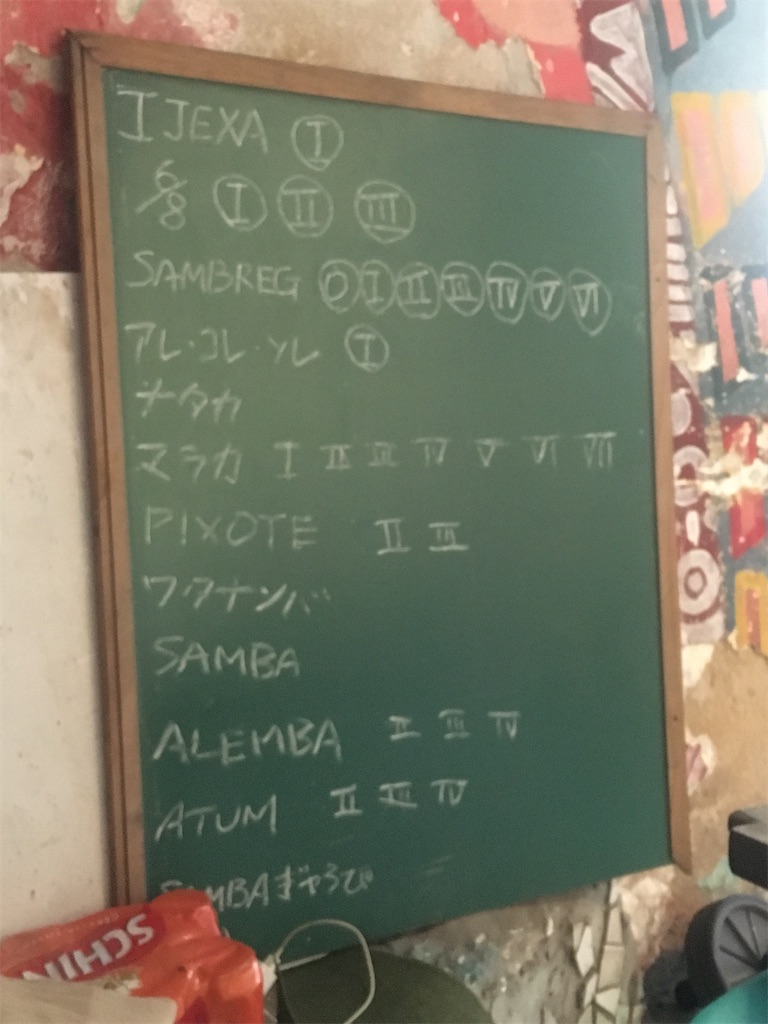 IJEXA I
6/8 I II III
SAMBREG 0 I II III IV V VI
アレ・コレ・ソレ I
ナタカ
マラカ I II III IV V VI VII
PIXOTE II III
SAMBA
ALEMBA II III IV
ATUM II III IV
SAMBA
SCHIN